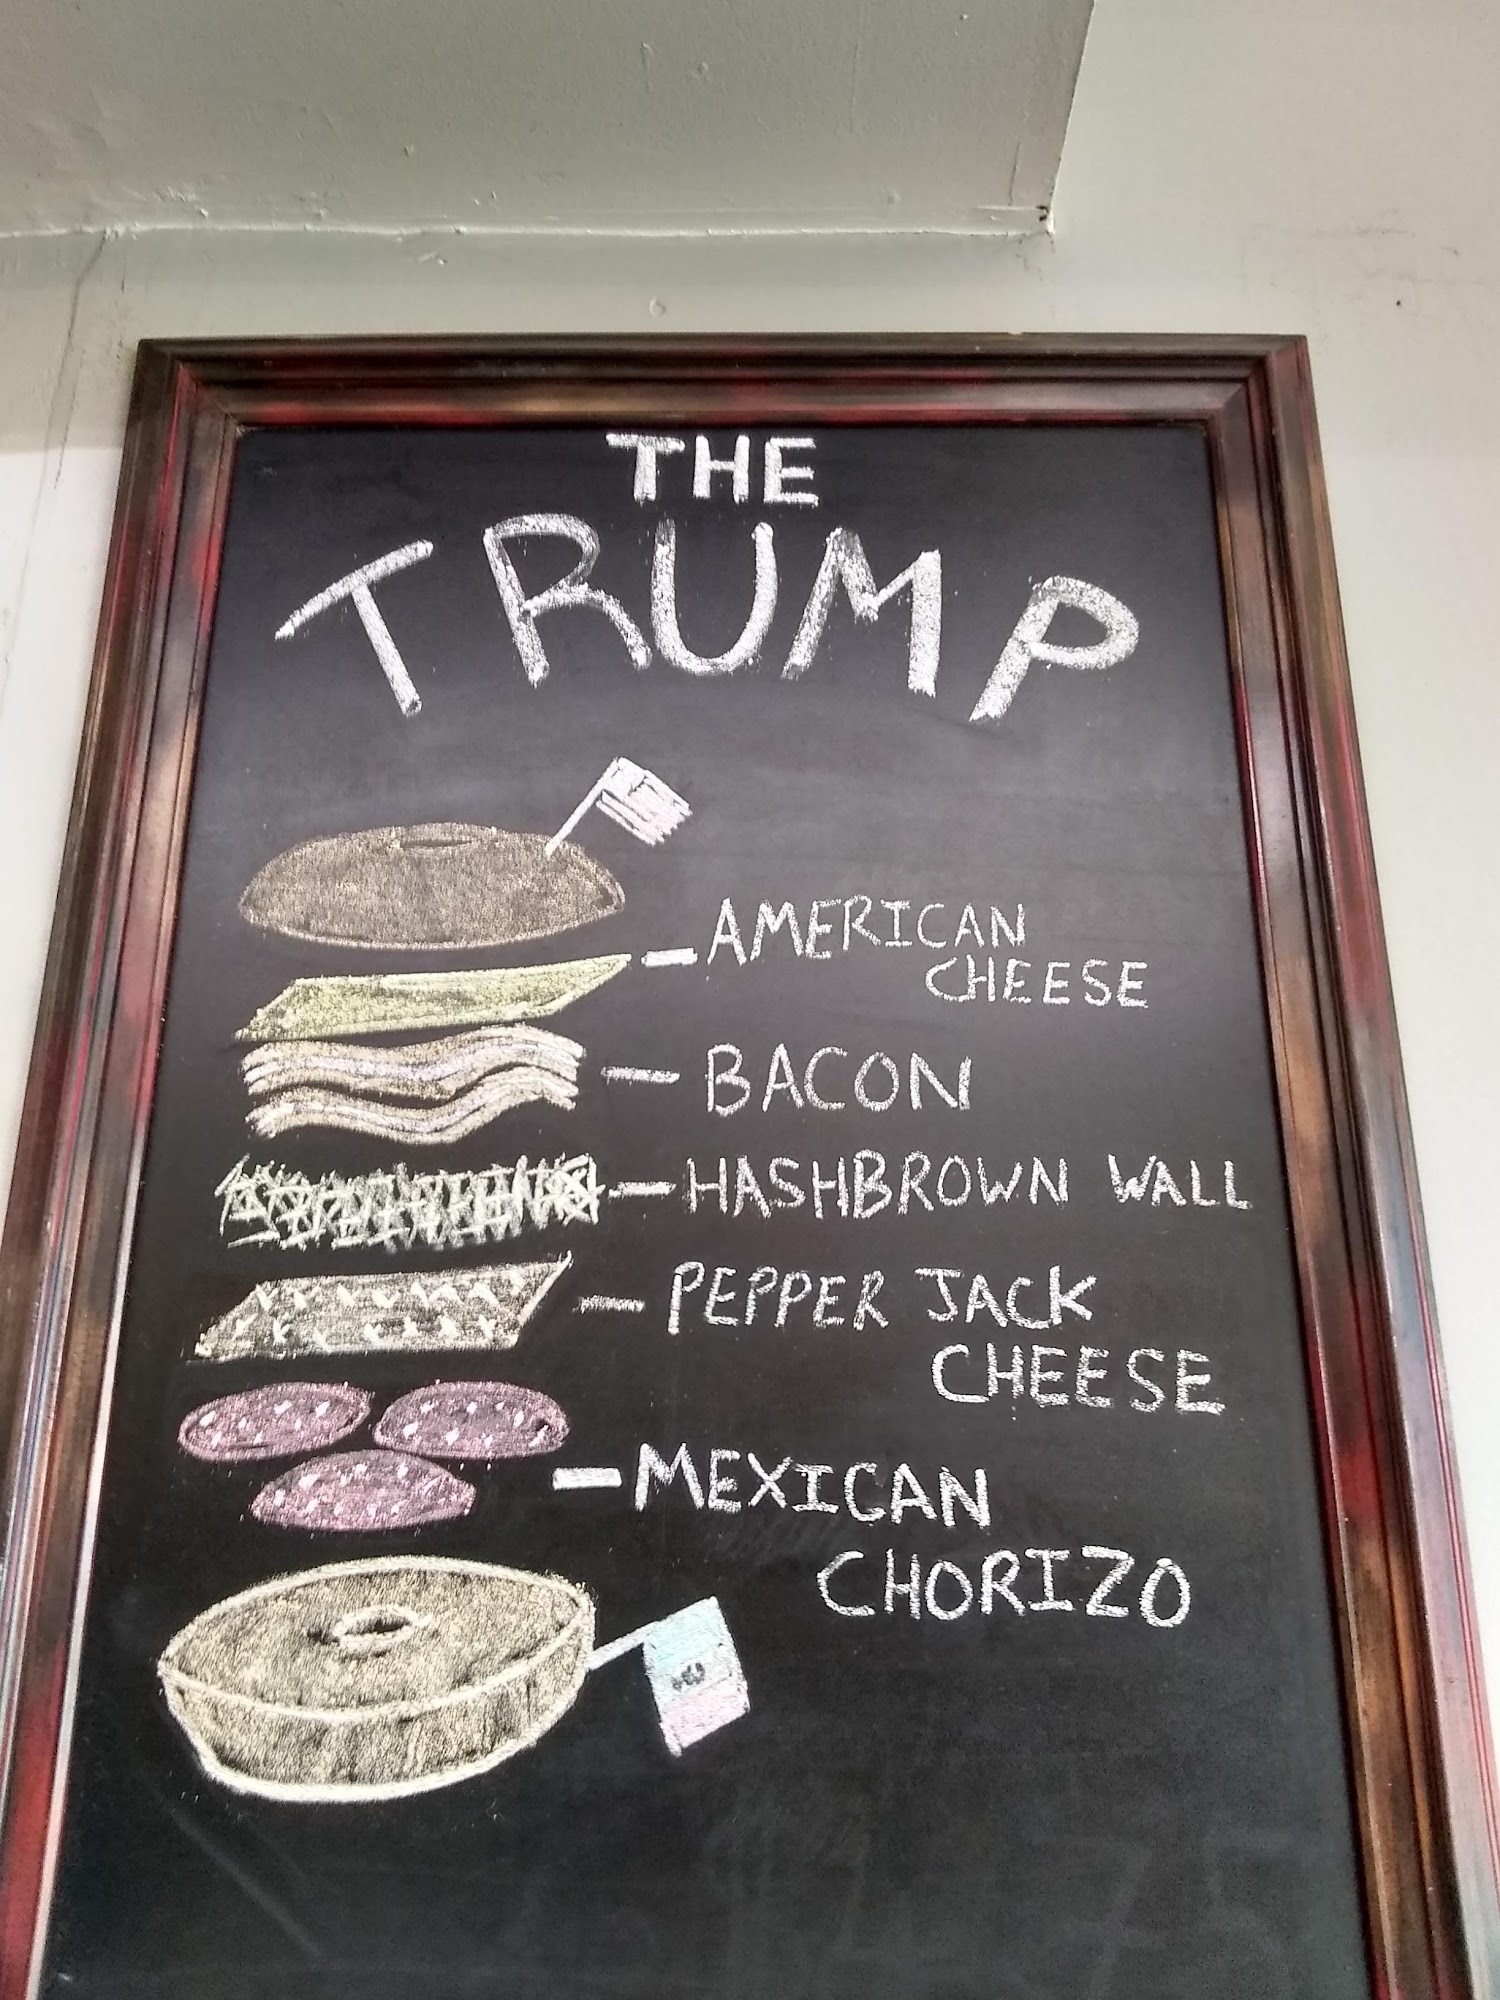 THE
TRUMP
AMERICAN
CHEESE
BACON
HASHBROWN WALL
PEPPER JACK
CHEESE
MEXICAN
CHORIZO